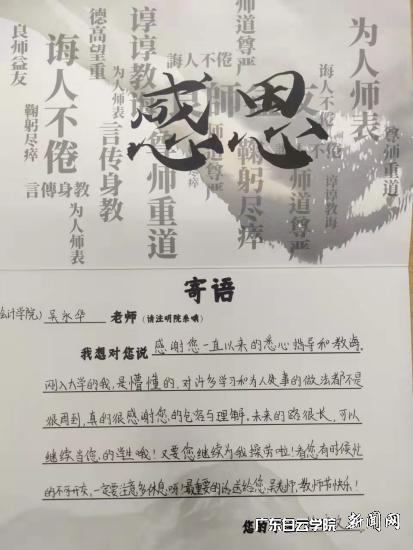 良师益友
德高望重
诲人不倦
鞠躬尽瘁
言傳身教
为人师表
谆谆教
为人师表
言传身教
师道尊严
诲人不倦
师道尊严
尊师重道
鞠躬尽瘁
师道尊严
为人师表
诲人不倦
谆谆教诲
尊师重道
感恩
寄语
会计学院) 吴永华 老师 (请注明院系哦)
我想对您说 感谢您一直以来的悉心指导和教诲,
刚入大学的我,是懵懂的,对许多学习和为人处事的做法都不是
很周到,真的很感谢您的包容与理解。未来的路很长,可以
继续当您的学生哦!又要您继续为我操劳啦!看您有时候忙
的不可开交,一定要注意多休息呀!最重要的话送给您,吴老师,教师节快乐!
您的
广东白云学院 新闻网